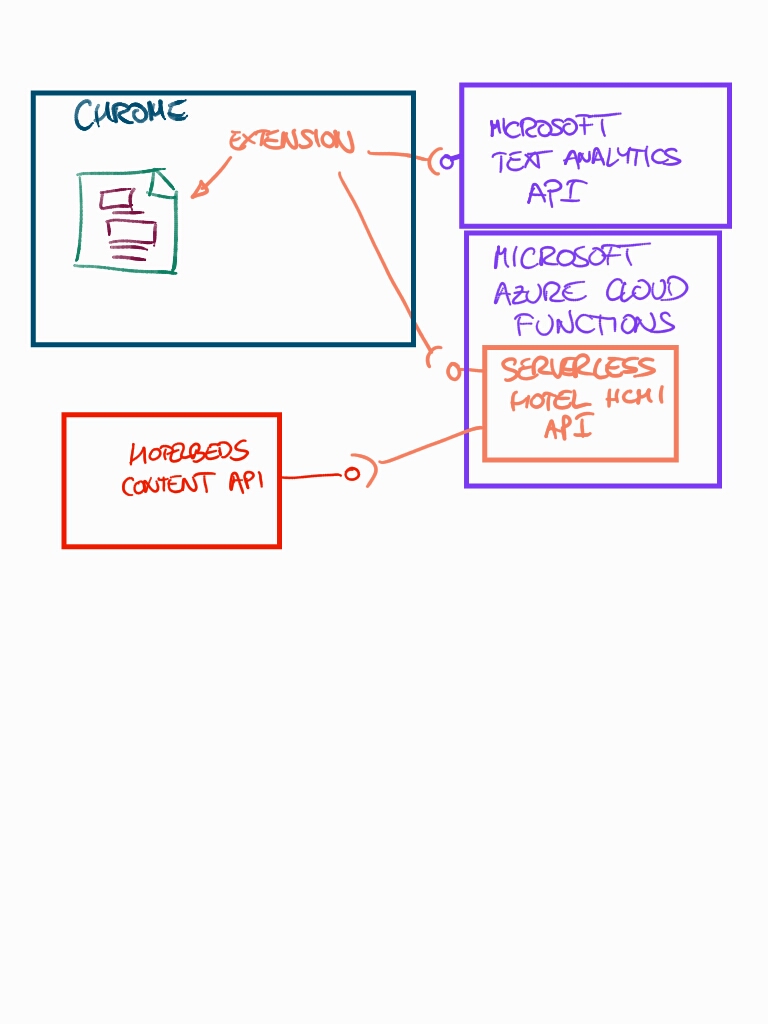 CHROME
EXTENSION
MICROSOFT
TEXT ANALYTICS
API
MICROSOFT
AZURE CLOUD
FUNCTIONS
SERVERLESS
HOTEL HCMI
API
HOTELBEDS
CONTENT API